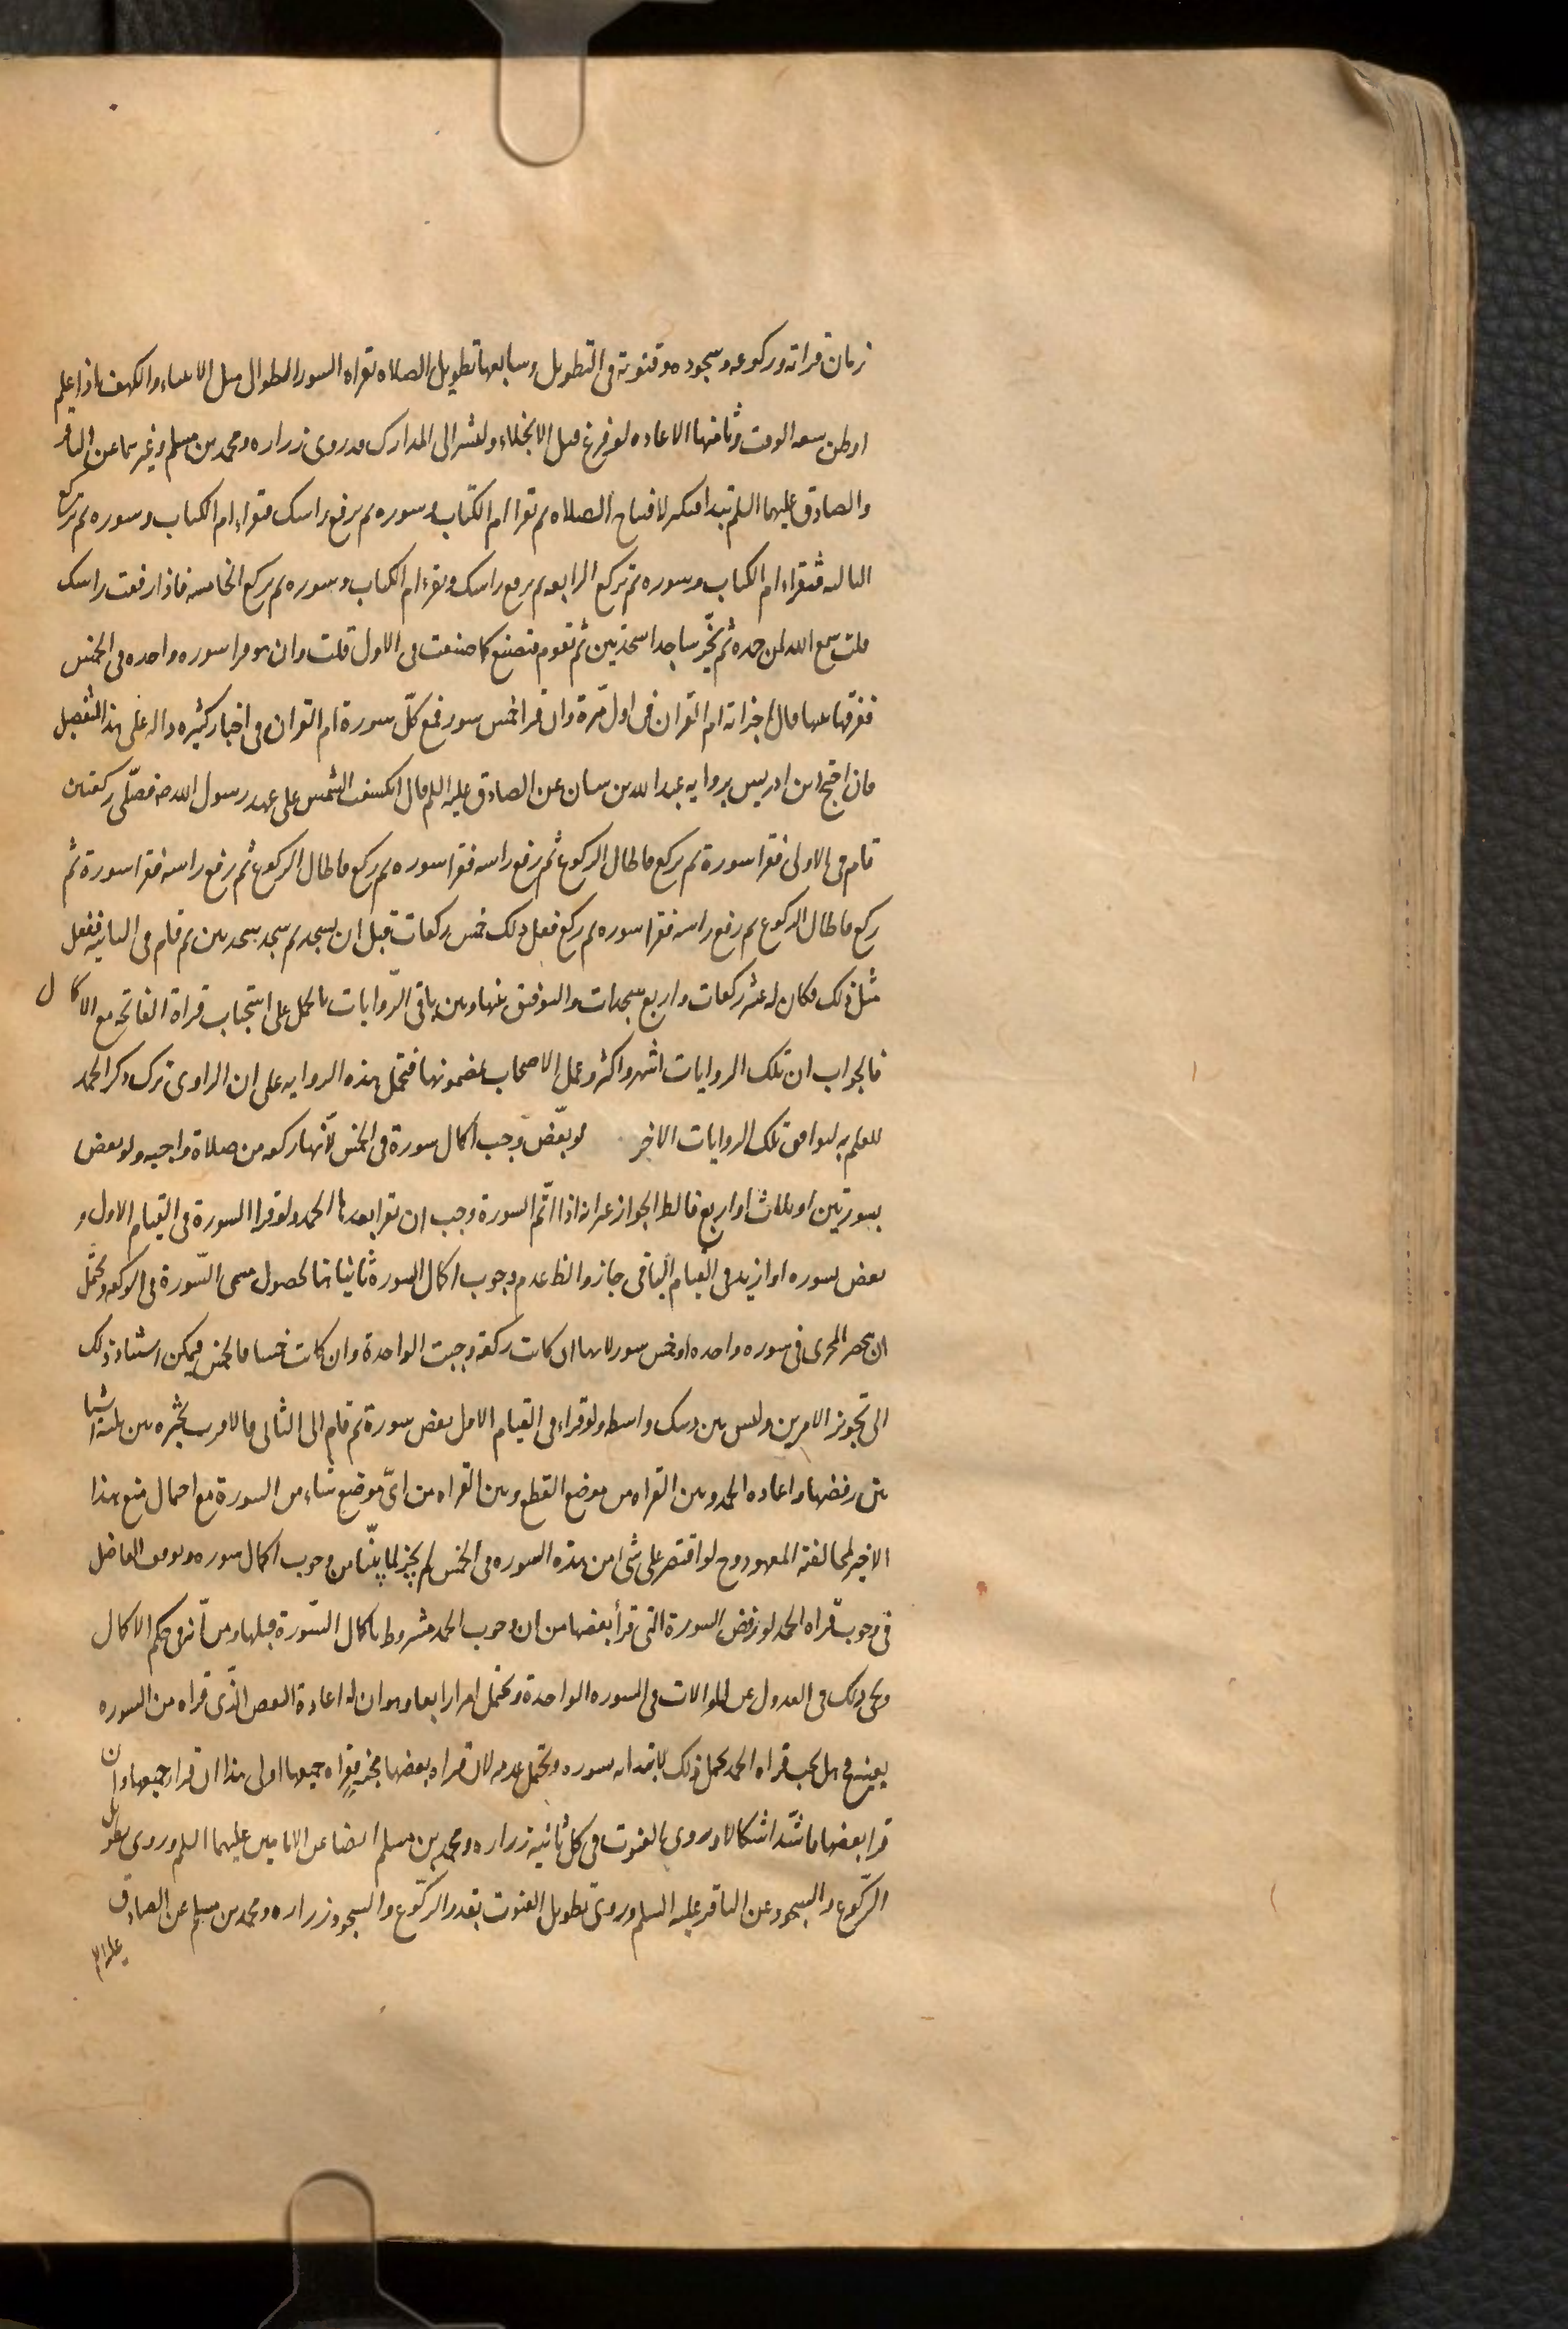 زمان قراته وركوعه وسجوده وقنوته فى التطويل وسابعها تطويل الصلاه بقراه السور الطوال مثل الانبياء والكهف اذا علم
او ظن سعه الوقت وثامنها الاعاده لو فرغ قبل الانجلاء ولنشر الى المدارك فروى زراره ومحمد بن مسلم وغيرهما عن الباقر
والصادق عليهما السلم تبدا فتكبر لافتتاح الصلاه ثم تقرا ام الكتاب وسوره ثم ترفع راسك فتقراء ام الكتاب وسوره ثم تركع
الثالثه فتقراء ام الكتاب وسوره ثم تركع الرابعه ثم ترفع راسك وتقرء ام الكتاب وسوره ثم تركع الخامسه فاذا رفعت راسك
قلت سمع الله لمن حمده ثم تخّر ساجدا سجدتين ثم تقوم فتصنع كما صنعت فى الاول قلت وان هو قرا سوره واحده فى الخمس
ففرقها بينها قال اجزاته ام القران فى اول مّرة وان قرا خمس سور فمع كلّ سورة ام القران فى اخبار كثيره داله على هذا التفصيل
فان احتج ابن ادريس بروايه عبد الله بن سنان عن الصادق عليه السلم قال انكسفت الشمس على عهد رسول الله صه فصلّى ركعتين
قام فى الاولى فقرا سورة ثم ركع فاطال الركوع ثم رفع راسه فقرا سوره ثم ركع فاطال الركوع ثم رفع راسه فقرا سورة ثم
ركع فاطال الركوع ثم رفع راسه فقرا سوره ثم ركع فعل ذلك خمس ركعات قبل ان يسجد ثم سجد سجدتين ثم قام فى الثانيه ففعل
مثل ذلك فكان له عشر ركعات واربع سجدات والتوفيق بينها وبين باقى الرّوايات بالحمل على استحباب قراة الفاتحه مع الاكمال
فالجواب ان تلك الروايات اشهر واكثر وعمل الاصحاب بمضمونها فتحمل هذه الروايه على ان الراوى ترك ذكر الحمد
للعلم به ليوافق تلك الروايات الاخر لو بعّض وجب اكمال سورة فى الخمس لانّها ركعه من صلاة واجبه ولو بعض
بسورتين او ثلاث او اربع فالظ الجواز غير انه اذا اتّم السورة وجب ان تقرا بعدها الحمد ولو قرا السورة فى القيام الاول و
بعض سوره او ازيد فى القيام الباقى جاز والظ عدم وجوب اكمال السورة ثانيا لحصول مسمى السّورة فى الركعه ويحتمل
ان ينحصر المجزى فى سوره واحده او خمس سور لانها ان كانت ركعة وجبت الواحدة وان كانت خمسا فالخمس فيمكن استناد ذلك
الى تجويز الامرين وليس بين ذينك واسطه ولو قراء فى القيام الاول بعض سورة ثم قام الى الثانى فالاقرب تخيّره بين ثلثه اشيا
بين رفضها واعاده الحمد وبين القراه من موضع القطع وبين القراه من اىّ موضع شاء من السورة مع احتمال منع هذا
الاخير لمخالفته المعهود وح لو اقتصر على شى من هذه السوره فى الخمس لم يجز لما بيّنا من وجوب اكمال سوره وتوقف الفاضل
فى وجوب قراه الحمد لو رفض السورة التى قرأ بعضها من ان وجوب الحمد مشروط باكمال السّورة قبلها ومن انّه فى حكم الاكمال
ويجى ذلك فى العدول عن الموالات فى السوره الواحدة ويحتمل امرا رابعا وهو ان له اعادة البعض الّذى قراه من السوره
بعينه فح هل يجب قراه الحمد يحتمل ذلك لابتدائه سوره ويحتمل عدمه لان قراه بعضها مجزيه فقراه جميعها اولى هذا ان قرا جميعها وان
قرا بعضها فاشّد اشكالا وروى القنوت فى كل ثانيه زراره ومحمد بن مسلم ايضا عن الامامين عليهما السلم وروى تطويل
الرّكوع والسجود عن الباقر عليه السلم وروى تطويل القنوت بقدر الرّكوع والسجود زراره ومحمد بن مسلم عن الصادق
عليه السلم